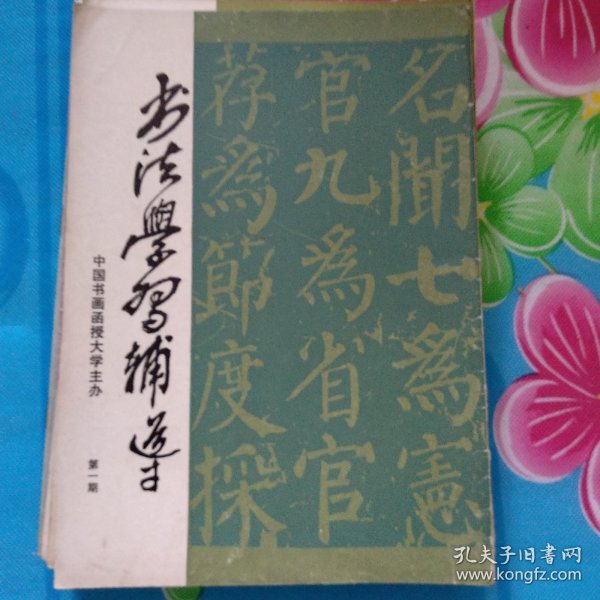 书法學習輔導
中国书画函授大学主办
第一期
名聞七為憲
官九為省官
荐為節度採
孔夫子旧书网
www.kongfz.com